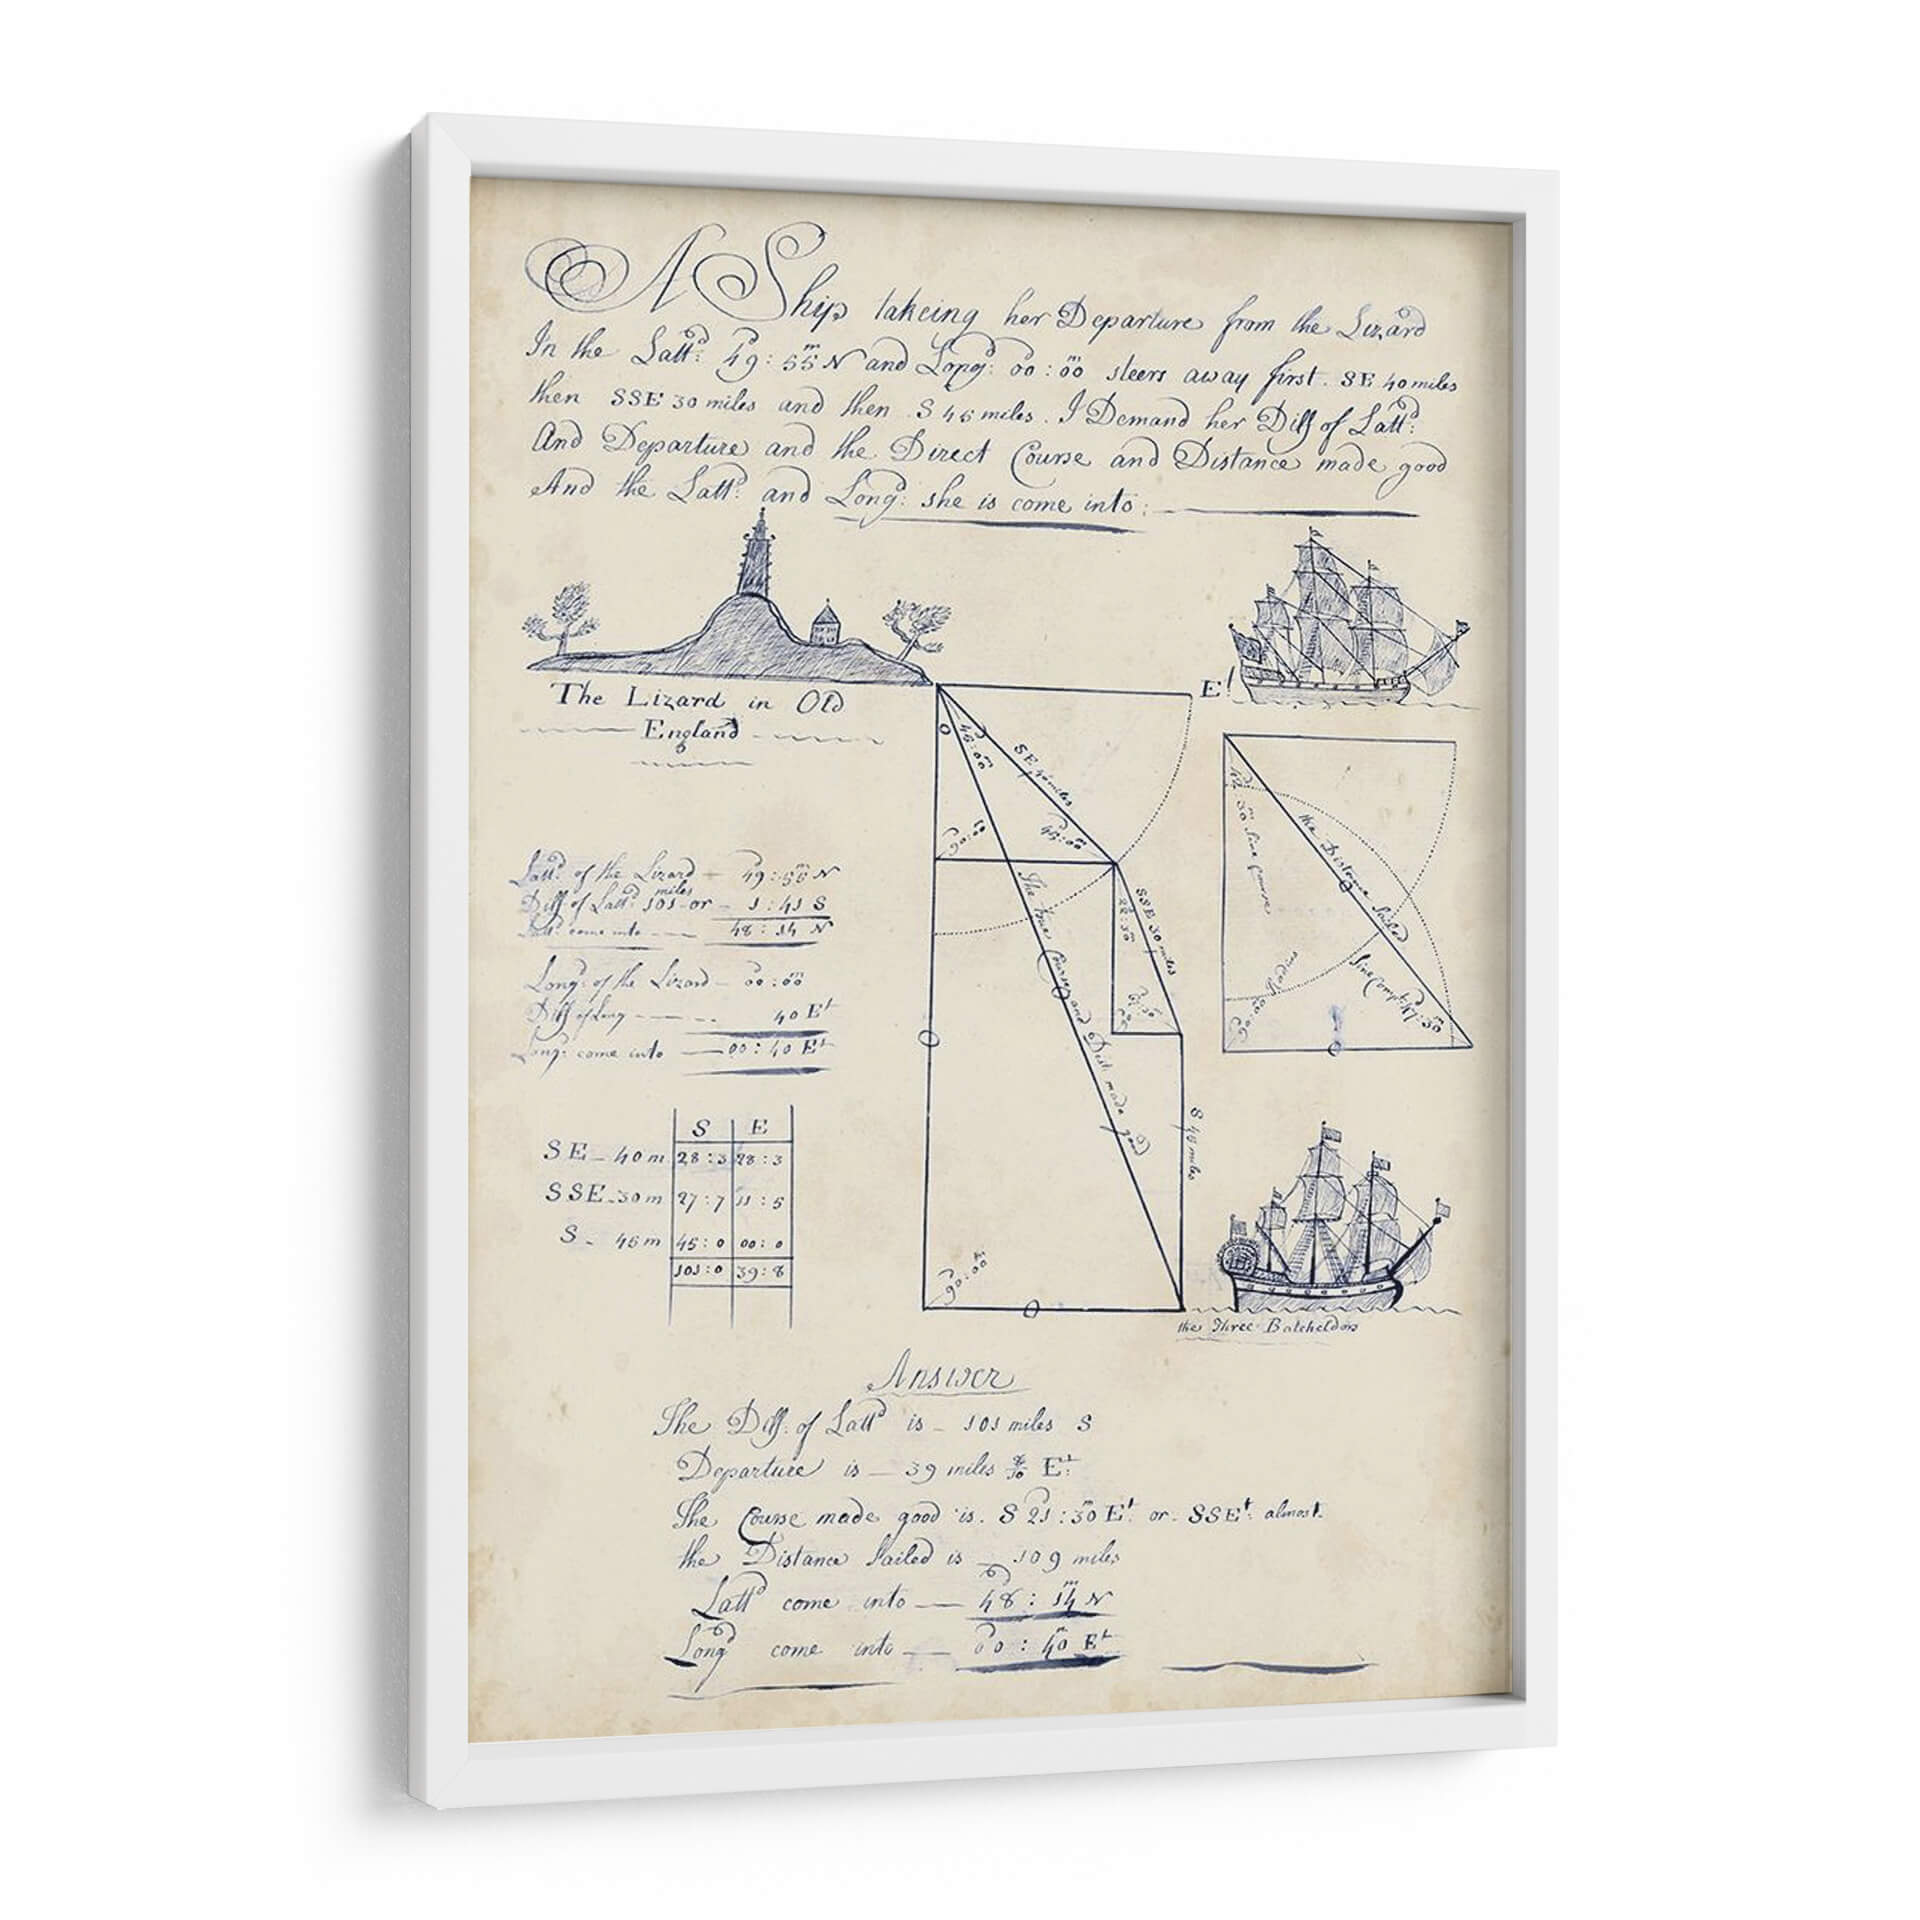 A Ship takeing her Departure from the Lizard
In the Lattd: 49:55m N and Longd: 00:00m steers away first. SE 40 miles
then SSE 30 miles and then S 45 miles. I Demand her Diff of Lattd:
And Departure and the Direct Course and Distance made good
And the Lattd: and Longd: she is come into:
The Lizard in Old
England
Et
45:00m
SE 40 miles
90:00
45:00
The true Course and Dist: made good
SSE 30 miles
22:30
S 45 miles
90:00m
the Distance Sailed
90:00 Radius
the Three Batcheldors
Lattd: of the Lizard - 49:55m N
Diff: of Lattd 101 miles or - 1:41 S
Lattd: come into - 48:14 N
Longd: of the Lizard - 00:00m
Diff of Long - 40 Et
Longd: come into - 00:40 Et
S E
SE - 40 m 28:3 28:3
SSE - 30 m 27:7 11:5
S - 45 m 45:0 00:0
101:0 39:8
Answer
The Diff: of Lattd is - 101 miles S
Departure is - 39 miles 8/10 Et:
The Course made good is. S 21:30m Et: or. SSEt: almost.
the Distance Sailed is - 109 miles
Lattd come into - 48:14m N
Longd come into - 00:40m Et